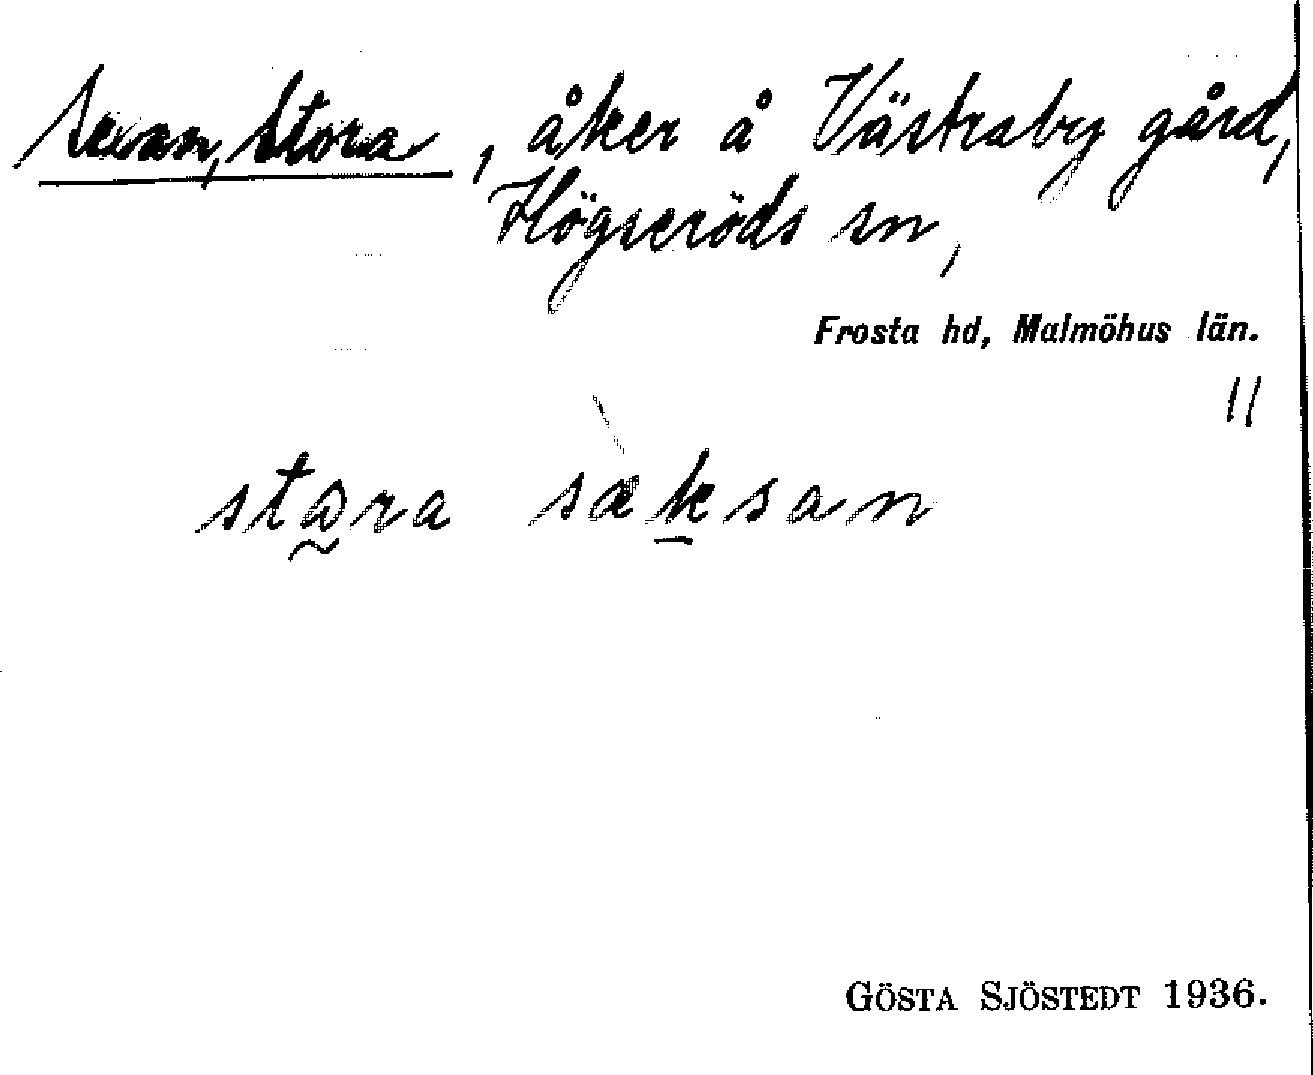 Sexan, Stora, åker å Västraby gård,
Högseröds sn,
Frosta hd, Malmöhus län.
11
stora sàksan
GÖSTA SJÖSTEDT 1936.